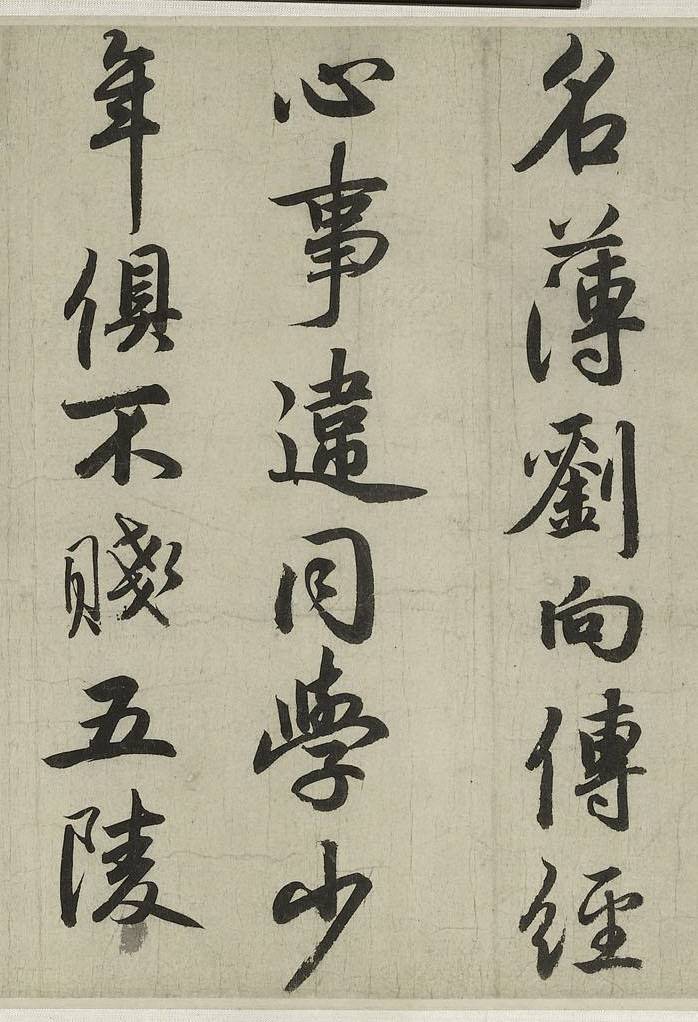 名薄劉向傳經
心事違同學少
年俱不賤五陵